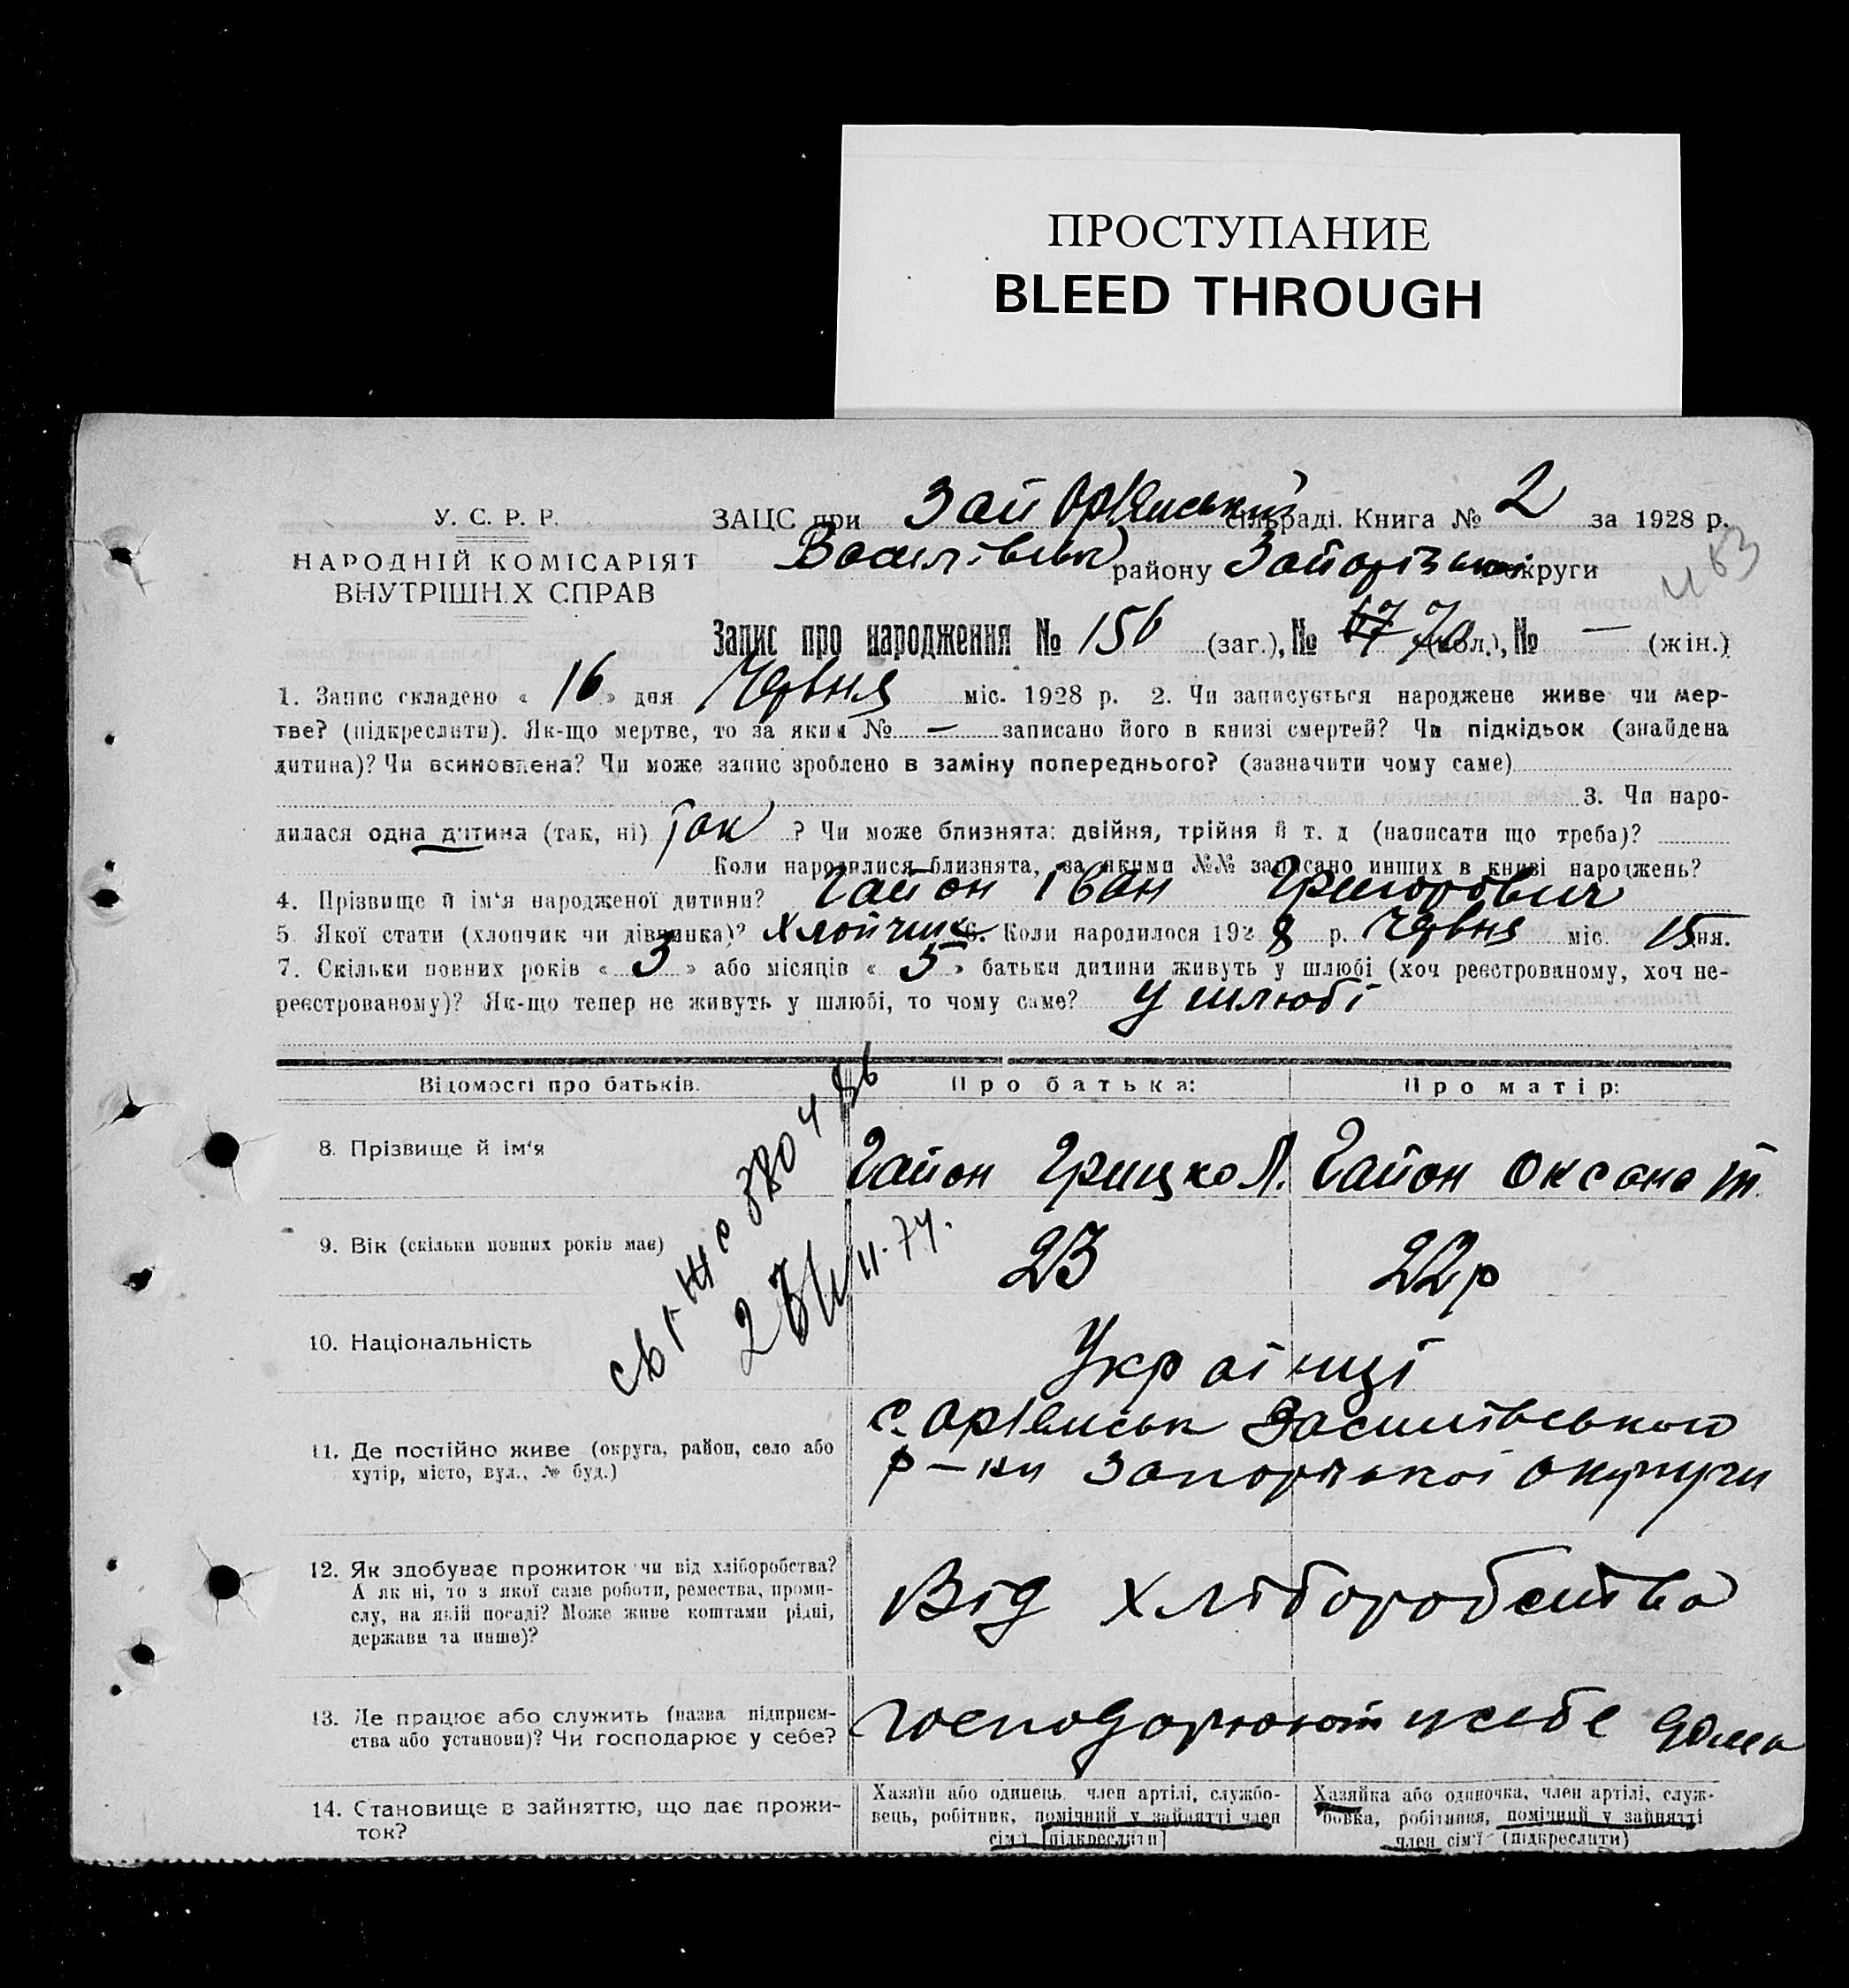 ПРОСТУПАНИЕ
BLEED THROUGH
У. С. Р. Р.
НАРОДНІЙ КОМІСАРІЯТ
ВНУТРІШН.Х СПРАВ
ЗАЦС при сільраді. Книга № 2 за 1928 р.
Василівськ району Запорізької округи
463
Запис про народження № 156 (заг.), № 67 70 (чол.), № — (жін.)
1. Запис складено « 16 » дня Червня міс. 1928 р. 2. Чи записується народжене живе чи мер-
тве? (підкреслити). Як-що мертве, то за яким № — записано його в книзі смертей? Чи підкідьок (знайдена
дитина)? Чи всиновлена? Чи може запис зроблено в заміну попереднього? (зазначити чому саме)
3. Чи наро-
дилася одна дитина (так, ні) так ? Чи може близнята: двійня, трійня й т. д (написати що треба)?
Коли народилися близнята, за якими №№ записано инших в книзі народжень?
4. Прізвище й ім‘я народженої дитини? Гапон Іван Григорович
5 Якої стати (хлопчик чи дівчинка)? Хлопчик 6. Коли народилося 1928 р. Червня міс. 15 дня.
7. Скільки повних років « 3 » або місяців « 5 » батьки дитини живуть у шлюбі (хоч реєстрованому, хоч не-
реєстрованому)? Як-що тепер не живуть у шлюбі, то чому саме? У шлюбі
Відомості про батьків. Про батька: Про матір:
8. Прізвище й ім‘я Гапон Грицко Л. Гапон Оксана Т.
9. Вік (скільки повних років має) 23 22 р
10. Національність Українці
11. Де постійно живе (округа, район, село або
хутір, місто, вул., № буд.)
с. Василівського
р-ну Запорізької округи
12. Як здобуває прожиток чи від хліборобства?
А як ні, то з якої саме роботи, ремества, проми-
слу, на якій посаді? Може живе коштами рідні,
держави та инше)?
Від хліборобства
13. Де працює або служить (назва підприєм-
ства або установи)? Чи господарює у себе?
господарюють у себе дома
14. Становище в зайняттю, що дає прожи-
ток?
Хазяїн або одинець, член артілі, службо-
вець, робітник, помічний у зайнятті член
сім'ї [підкреслити]
Хазяйка або одиночка, член артілі, служ-
бовка, робітниця, помічний у зайнятті
член сім'ї (підкреслити)